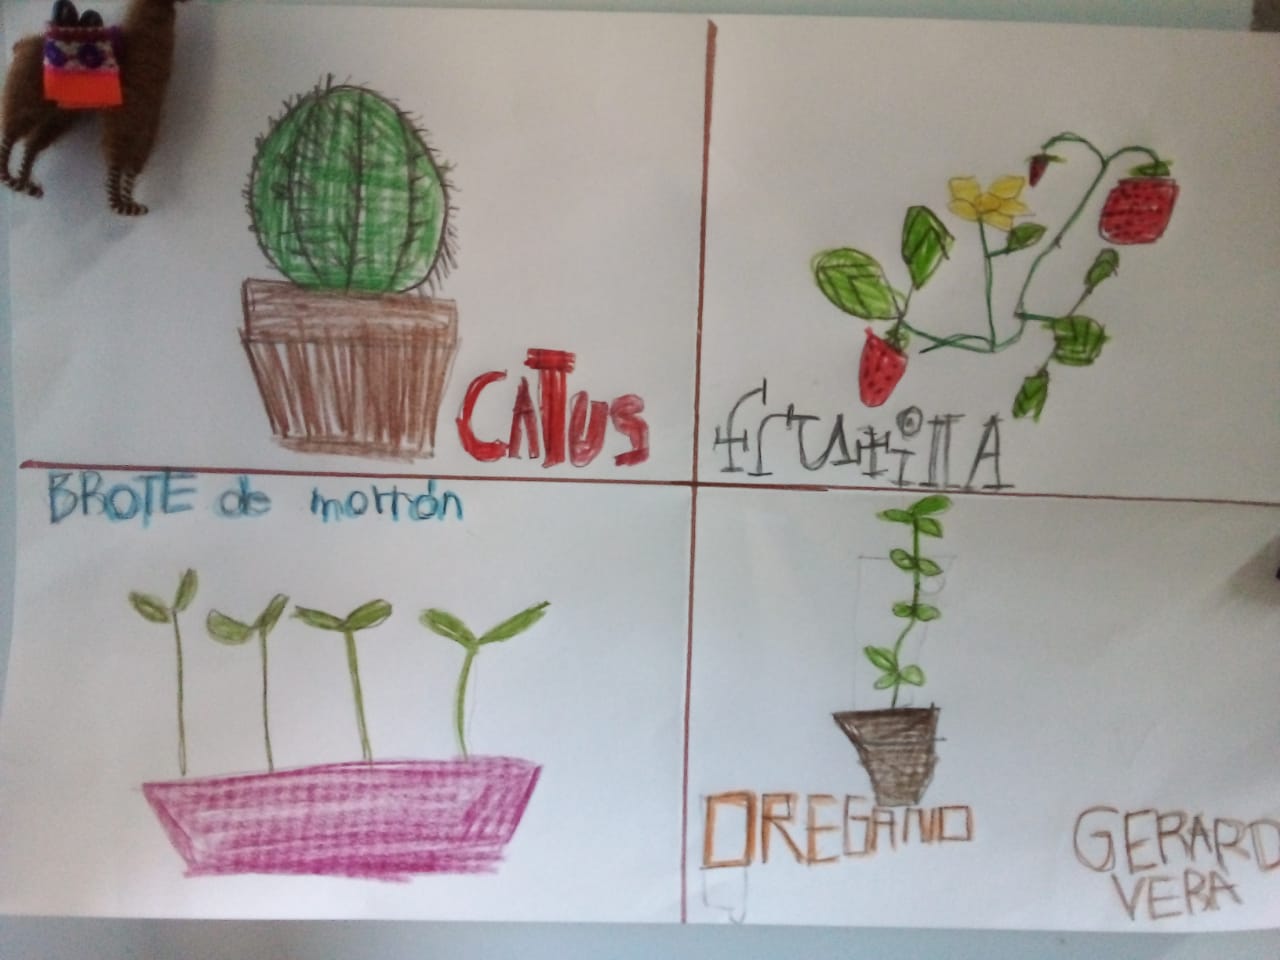 CATUS
frutillA
BROTE de morrón
OREGANO
GERARD
VERA